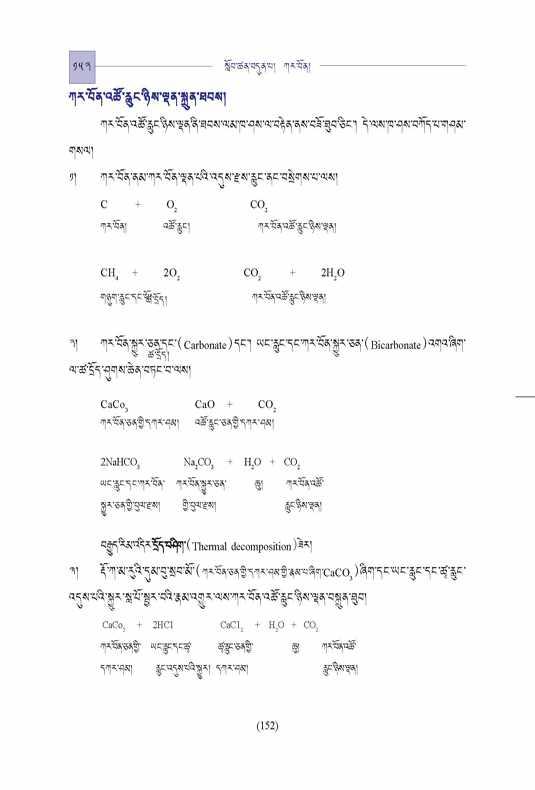 ༡༥༢ སློབ་ཚན་བདུན་པ། ཀར་བོན།
ཀར་བོན་འཚོ་རླུང་ཉིས་ལྡན་སྐྲུན་ཐབས།
ཀར་བོན་འཚོ་རླུང་ཉིས་ལྡན་ནི་ཐབས་ལམ་ཁ་ཤས་ལ་བརྟེན་ནས་བཟོ་ཐུབ་ཅིང་། དེ་ལས་ཁ་ཤས་བཀོད་པ་གཤམ་
གསལ།
༡། ཀར་བོན་ནམ་ཀར་བོན་ལྡན་པའི་འདུས་རྫས་རླུང་ནང་བསྲེགས་པ་ལས།
C + O2 CO2
ཀར་བོན། འཚོ་རླུང་། ཀར་བོན་འཚོ་རླུང་ཉིས་ལྡན།
CH4 + 2O2 CO2 + 2H2O
གཉུག་རླུང་དང་ ཀར་བོན་འཚོ་རླུང་ཉིས་ལྡན།
༢། ཀར་བོན་སྐྱུར་ཅན་དང་(Carbonate)དང་། ཡང་རླུང་དང་ཀར་བོན་སྐྱུར་ཅན་(Bicarbonate)འགའ་ཞིག་
ཚ་དྲོད།
ལ་ཚ་དྲོད་ཤུགས་ཆེན་བཏང་བ་ལས།
CaCo3 CaO + CO2
ཀར་བོན་ཅན་གྱི་དཀར་ཤམ། འཚོ་རླུང་ཅན་གྱི་དཀར་ཤམ།
2NaHCO3 Na2CO3 + H2O + CO2
ཡང་རླུང་དང་ཀར་བོན་ ཀར་བོན་སྐྱུར་ཅན་ ཆུ། ཀར་བོན་འཚོ་
སྐྱུར་ཅན་གྱི་བུལ་རྫས། གྱི་བུལ་རྫས། རླུང་ཉིས་ལྡན།
བརྒྱུད་རིམ་འདིར་དྲོད་བཤིག་(Thermal decomposition)ཟེར།
༣། རྡོ་ཀ་མ་རུའི་དུམ་བུ་སྲབ་མོ་(ཀར་བོན་ཅན་གྱི་དཀར་ཤམ་གྱི་རྣམ་པ་ཞིག་CaCO3)ཞིག་དང་ཡང་རླུང་དང་ཚྭ་རླུང་
འདུས་པའི་སྐྱུར་སླ་པོ་སྦྱར་བའི་རྣམ་འགྱུར་ལས་ཀར་བོན་འཚོ་རླུང་ཉིས་ལྡན་བསྐྲུན་ཐུབ།
CaCo3 + 2HCl CaCl2 + H2O + CO2
ཀར་བོན་ཅན་གྱི་ ཡང་རླུང་དང་ཚྭ་ ཚྭ་རླུང་ཅན་གྱི་ ཆུ། ཀར་བོན་འཚོ་
དཀར་ཤམ། རླུང་འདུས་པའི་སྐྱུར། དཀར་ཤམ། རླུང་ཉིས་ལྡན།
(152)